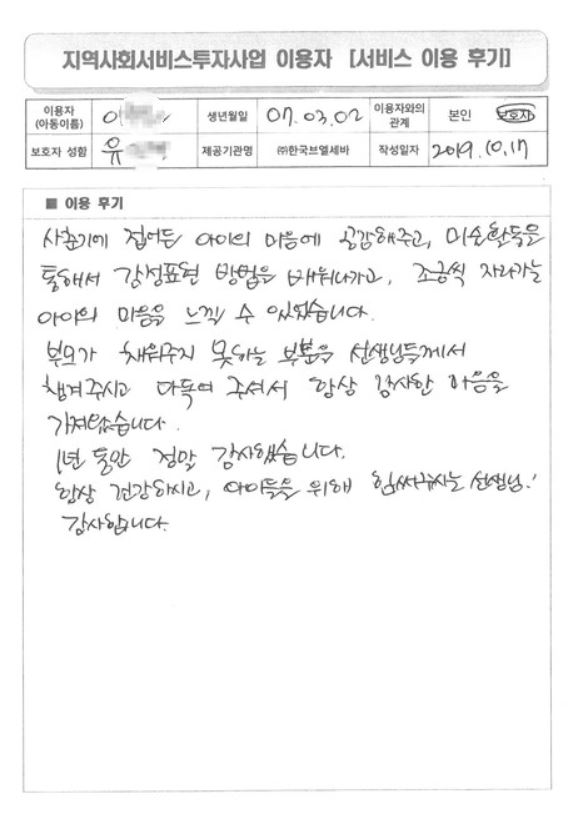 지역사회서비스투자사업 이용자 [서비스 이용 후기]
이용자 (아동이름) 이 생년월일 07.03.02 이용자와의 관계 본인 보호자
보호자 성함 유 제공기관명 ㈜한국브엘세바 작성일자 2019.10.17
■ 이용 후기
사춘기에 접어든 아이의 마음에 공감해주고, 미술활동을
통해서 감정표현 방법을 배워나가고, 조금씩 자라가는
아이의 마음을 느낄 수 있었습니다.
부모가 채워주지 못하는 부분을 선생님들께서
챙겨주시고 다독여 주셔서 항상 감사한 마음을
가져왔습니다.
1년 동안 정말 감사했습니다.
항상 건강하시고, 아이들을 위해 힘써주시는 선생님!
감사합니다.